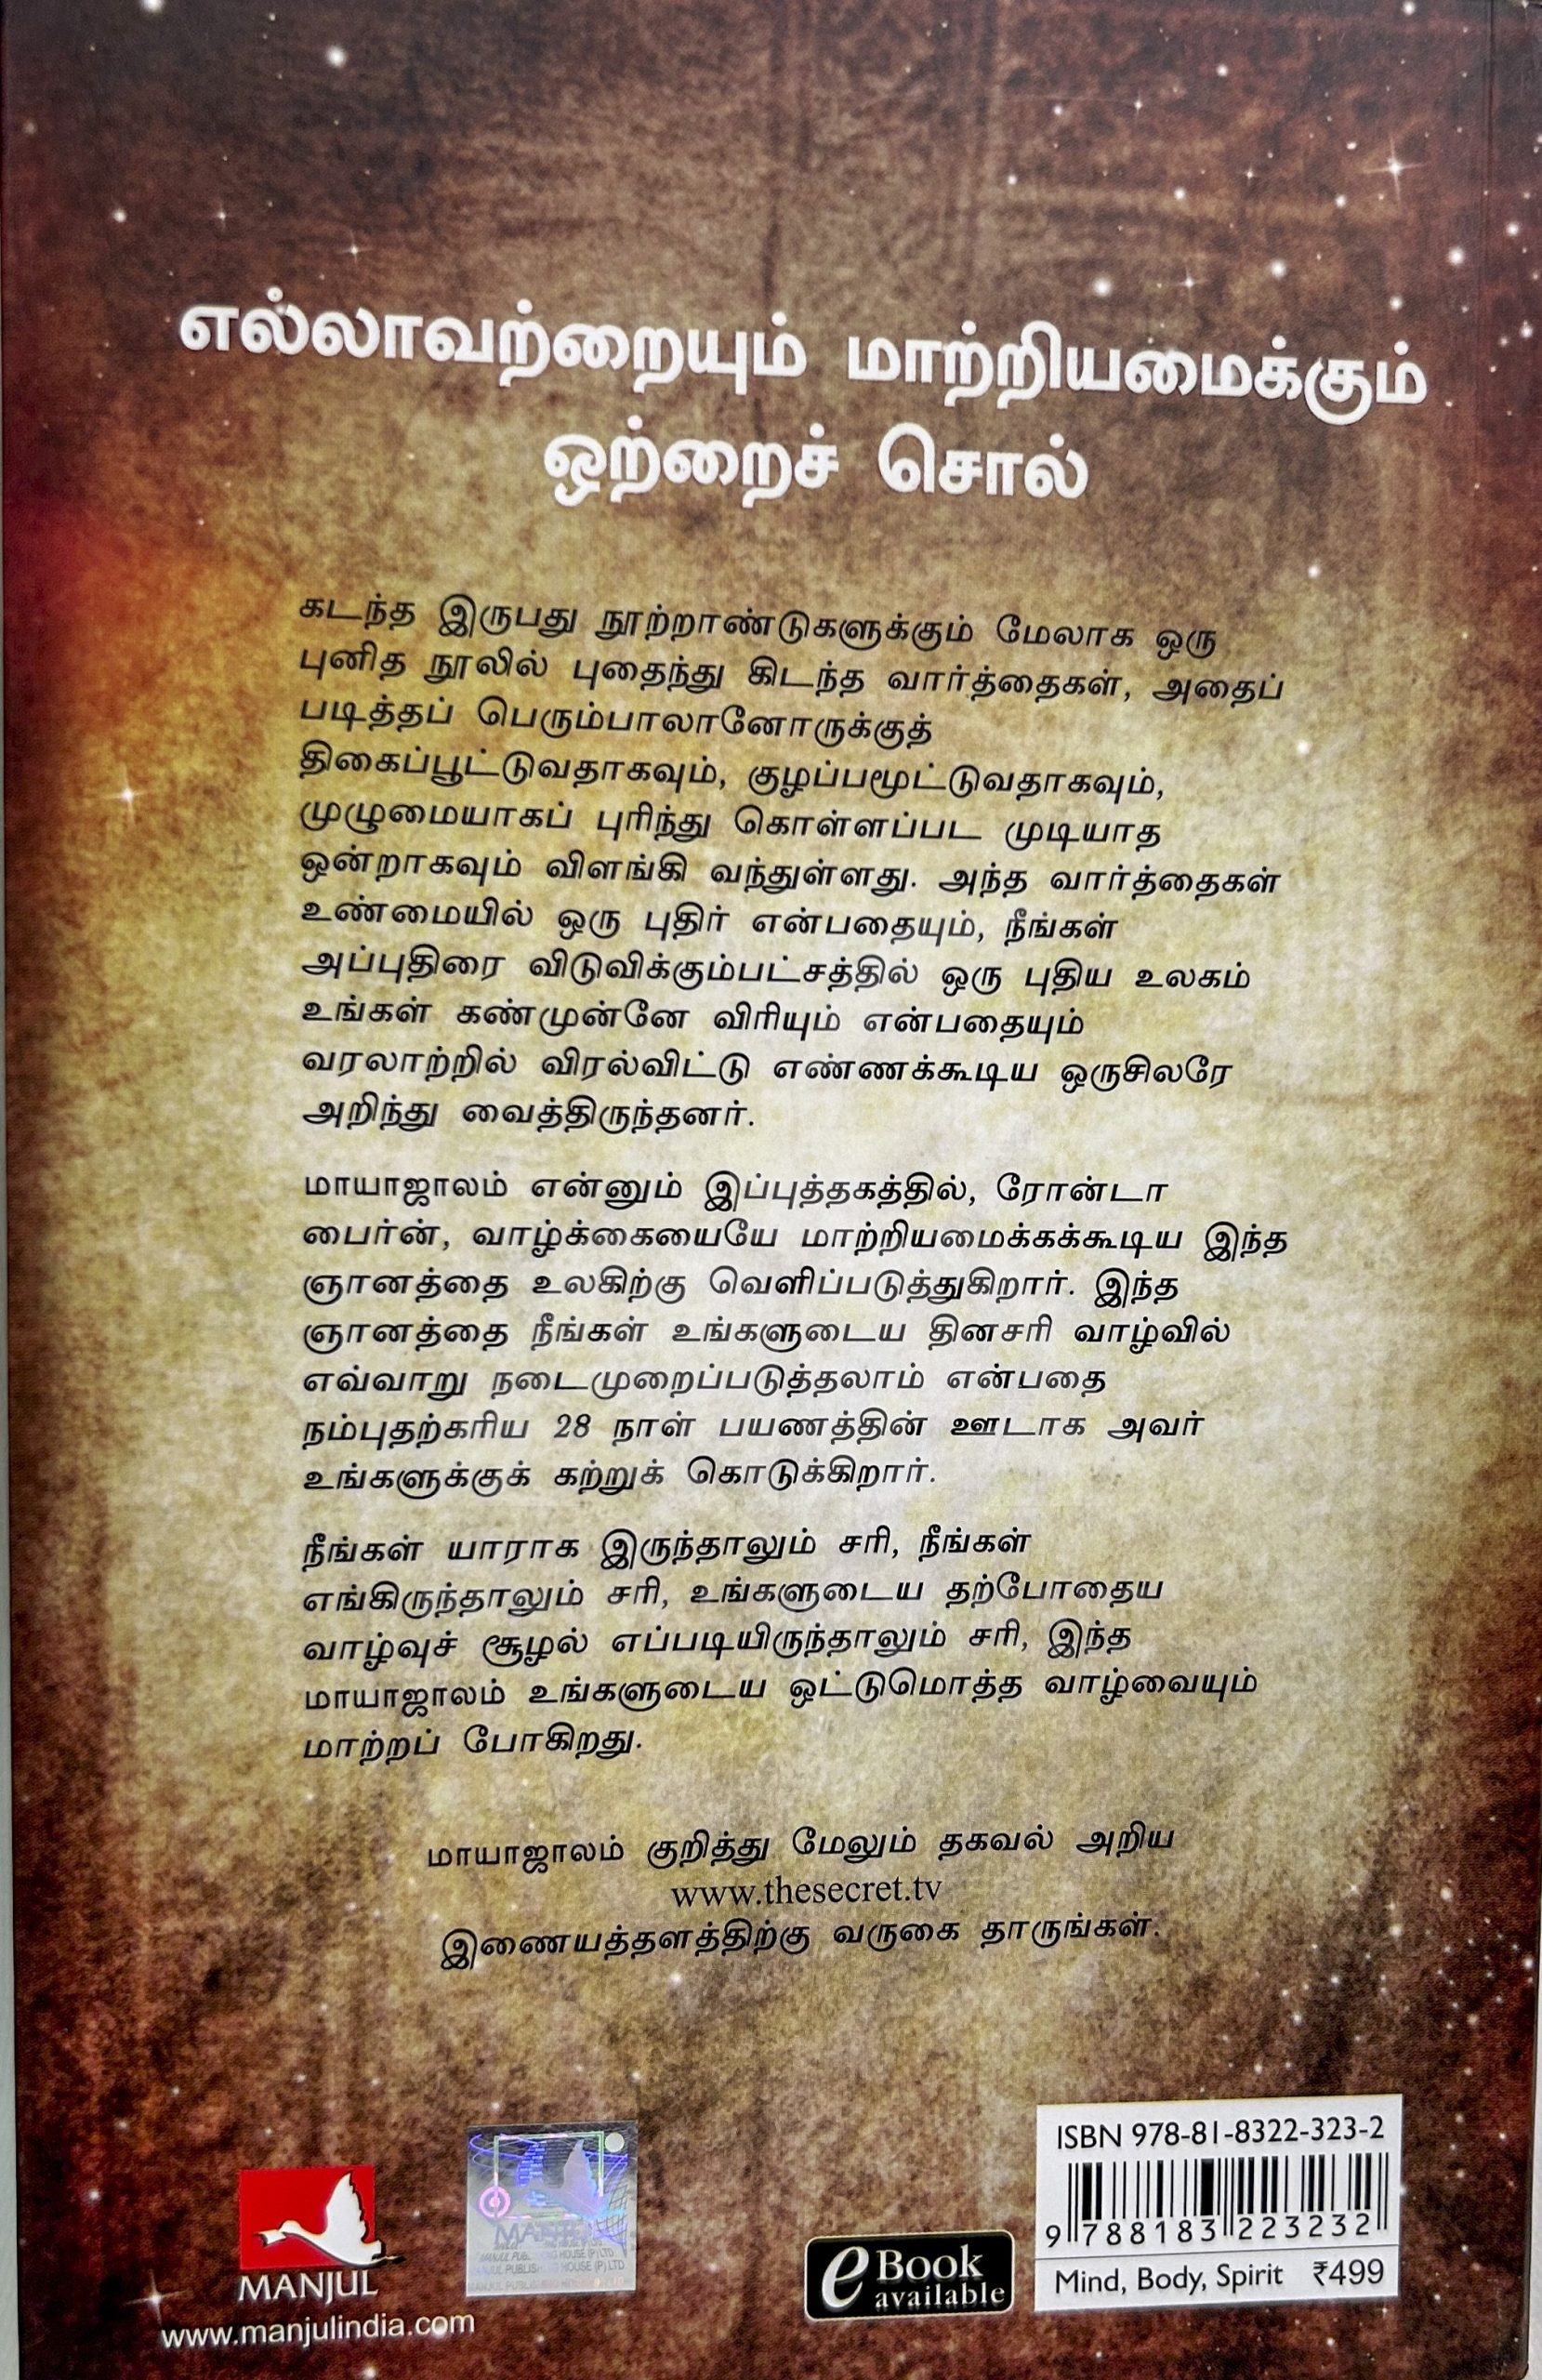 எல்லாவற்றையும் மாற்றியமைக்கும்
ஒற்றைச் சொல்
கடந்த இருபது நூற்றாண்டுகளுக்கும் மேலாக ஒரு
புனித நூலில் புதைந்து கிடந்த வார்த்தைகள், அதைப்
படித்தப் பெரும்பாலானோருக்குத்
திகைப்பூட்டுவதாகவும், குழப்பமூட்டுவதாகவும்,
முழுமையாகப் புரிந்து கொள்ளப்பட முடியாத
ஒன்றாகவும் விளங்கி வந்துள்ளது. அந்த வார்த்தைகள்
உண்மையில் ஒரு புதிர் என்பதையும், நீங்கள்
அப்புதிரை விடுவிக்கும்பட்சத்தில் ஒரு புதிய உலகம்
உங்கள் கண்முன்னே விரியும் என்பதையும்
வரலாற்றில் விரல்விட்டு எண்ணக்கூடிய ஒருசிலரே
அறிந்து வைத்திருந்தனர்.
மாயாஜாலம் என்னும் இப்புத்தகத்தில், ரோன்டா
பைர்ன், வாழ்க்கையையே மாற்றியமைக்கக்கூடிய இந்த
ஞானத்தை உலகிற்கு வெளிப்படுத்துகிறார். இந்த
ஞானத்தை நீங்கள் உங்களுடைய தினசரி வாழ்வில்
எவ்வாறு நடைமுறைப்படுத்தலாம் என்பதை
நம்புதற்கரிய 28 நாள் பயணத்தின் ஊடாக அவர்
உங்களுக்குக் கற்றுக் கொடுக்கிறார்.
நீங்கள் யாராக இருந்தாலும் சரி, நீங்கள்
எங்கிருந்தாலும் சரி, உங்களுடைய தற்போதைய
வாழ்வுச் சூழல் எப்படியிருந்தாலும் சரி, இந்த
மாயாஜாலம் உங்களுடைய ஒட்டுமொத்த வாழ்வையும்
மாற்றப் போகிறது.
மாயாஜாலம் குறித்து மேலும் தகவல் அறிய
www.thesecret.tv
இணையத்தளத்திற்கு வருகை தாருங்கள்.
MANJUL
www.manjulindia.com
eBook
available
ISBN 978-81-8322-323-2
9 788183 223232
Mind, Body, Spirit ₹499